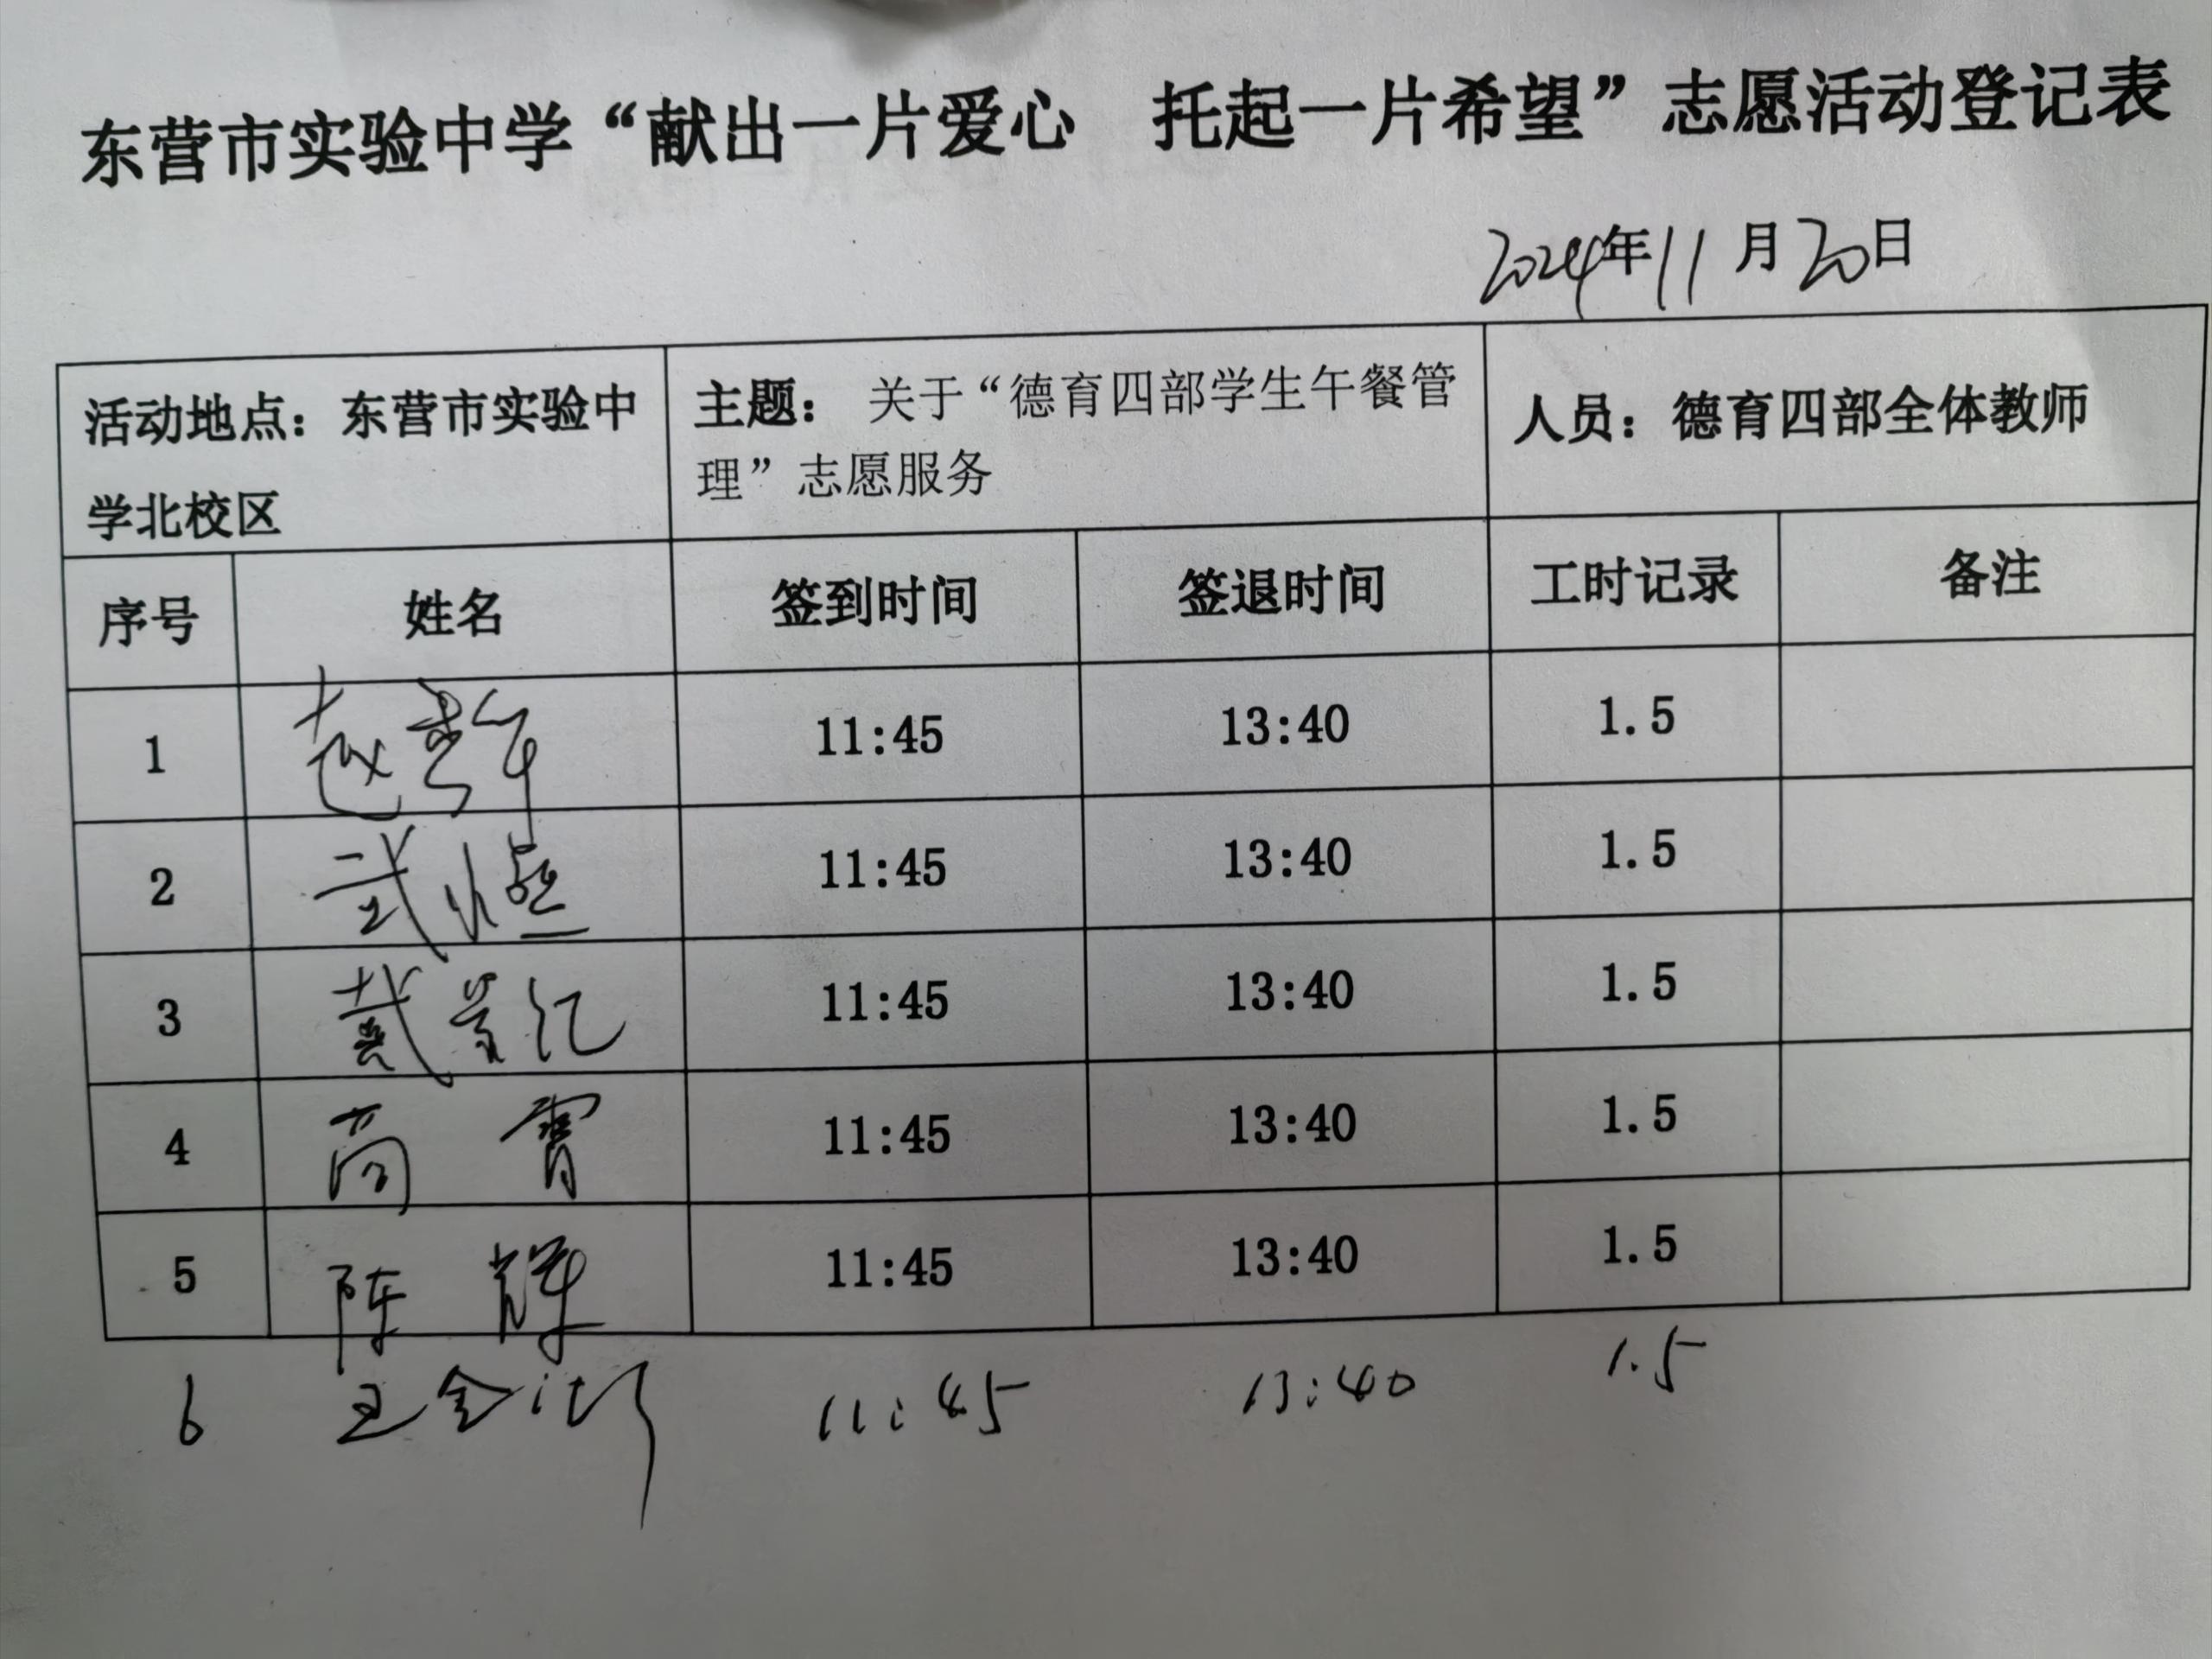 东营市实验中学“献出一片爱心 托起一片希望”志愿活动登记表
2024年11月20日
活动地点：东营市实验中学北校区 主题： 关于“德育四部学生午餐管理”志愿服务 人员：德育四部全体教师
序号 姓名 签到时间 签退时间 工时记录 备注
1 赵 11:45 13:40 1.5
2 武燃 11:45 13:40 1.5
3 戴红 11:45 13:40 1.5
4 高霄 11:45 13:40 1.5
5 陈辉 11:45 13:40 1.5
6 王金 11:45 13:40 1.5